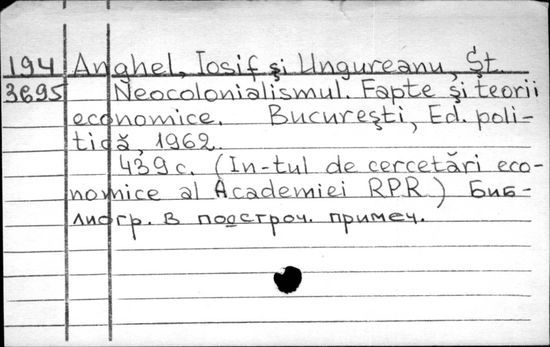 194 Anghel, Iosif şi Ungureanu, Şt.
3695 Neocolonialismul. Fapte şi teorii
economice. Bucureşti, Ed. poli-
tică, 1962.
439 с. (In-tul de cercetări eco-
nomice al Academiei RPR) Биб-
лиогр. в подстроч. примеч.